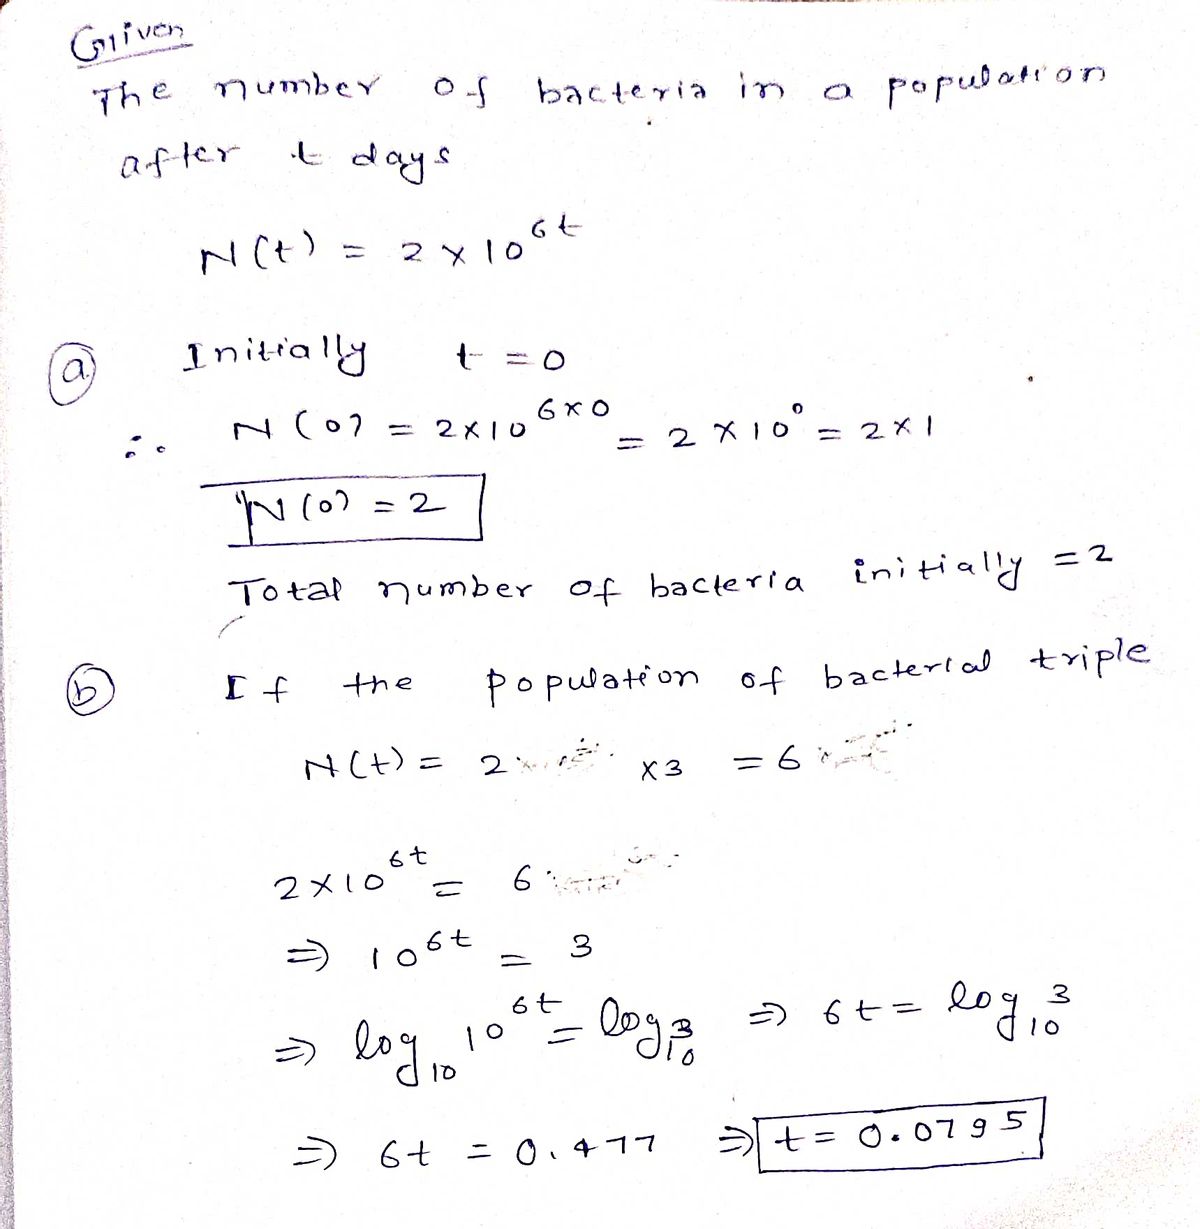 Given
The number of bacteria in a population
after t days
N(t) = 2 x 10^6t
(a) Initially t = 0
∴ N(0) = 2x10^6x0 = 2 x 10^0 = 2 x 1
N(0) = 2
Total number of bacteria initially = 2
(b) If the population of bacterial triple
N(t) = 2 x3 = 6
2x10^6t = 6
⇒ 10^6t = 3
⇒ log_10 10^6t = log_10 3 ⇒ 6t = log_10 3
⇒ 6t = 0.477 ⇒ t = 0.0795